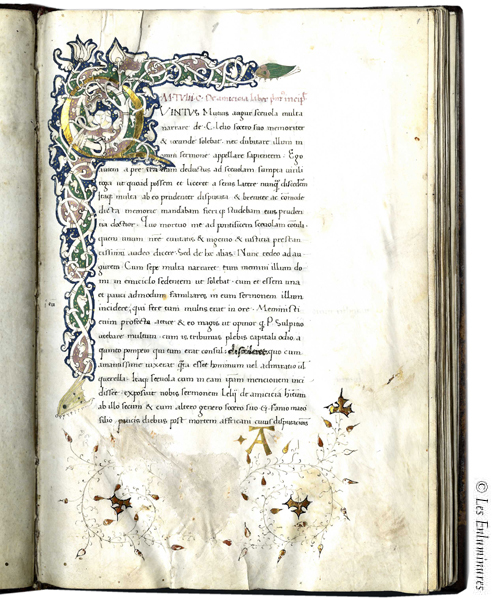 M·TVLII·C· De amicicia liber prim' incip'
VINTVS Mutius augur scevola multa
narrare de C. Lelio socero suo memoriter
& iocunde solebat. nec dubitare illum in
omni sermone appellare sapientem. Ego
autem a patre ita eram deductus ad scevolam sumpta virili
toga ut quoad possem et liceret a senis latere nunq̃ discederem
Itaq; multa ab eo prudenter disputata & breviter ac comode
dicta memorie mandabam fieriq; studebam eius pruden
tia doctior. Quo mortuo me ad pontificem scevolam contuli
quem unum nr̃e civitatis & ingenio & iusticia prestan
tissimum audeo dicere. Sed de hoc alias. Nunc redeo ad au
gurem. Cum sepe multa narraret tum memini illum do
mi in emiciclo sedentem ut solebat. cum et essem una
et pauci admodum familiares in eum sermonem illum
incidere, qui fere tum multis erat in ore. Meministi
enim profecto attice & eo magis ut opinor q P. Sulpitio
utebare multum. cum is tribunus plebis capitali odio a
quinto pompeio qui tum erat consul dissideret quo cum
amantissime vixerat esset hominum vel admiratio vel
querella. Itaq; scevola cum in eam ipsam mencionem inci
disset. exposuit nobis sermonem Lelij de amicicia habitum
ab illo secum & cum altero genero socero suo C. Fannio marci
filio paucis diebus post mortem affricani cuius disputationis
A
© Les Enluminures